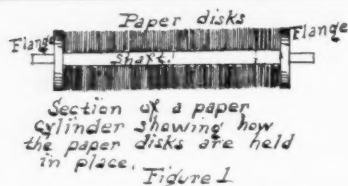 Paper disks
Flange
Flange
shaft.
Section of a paper
cylinder showing how
the paper disks are held
in place.
Figure 1